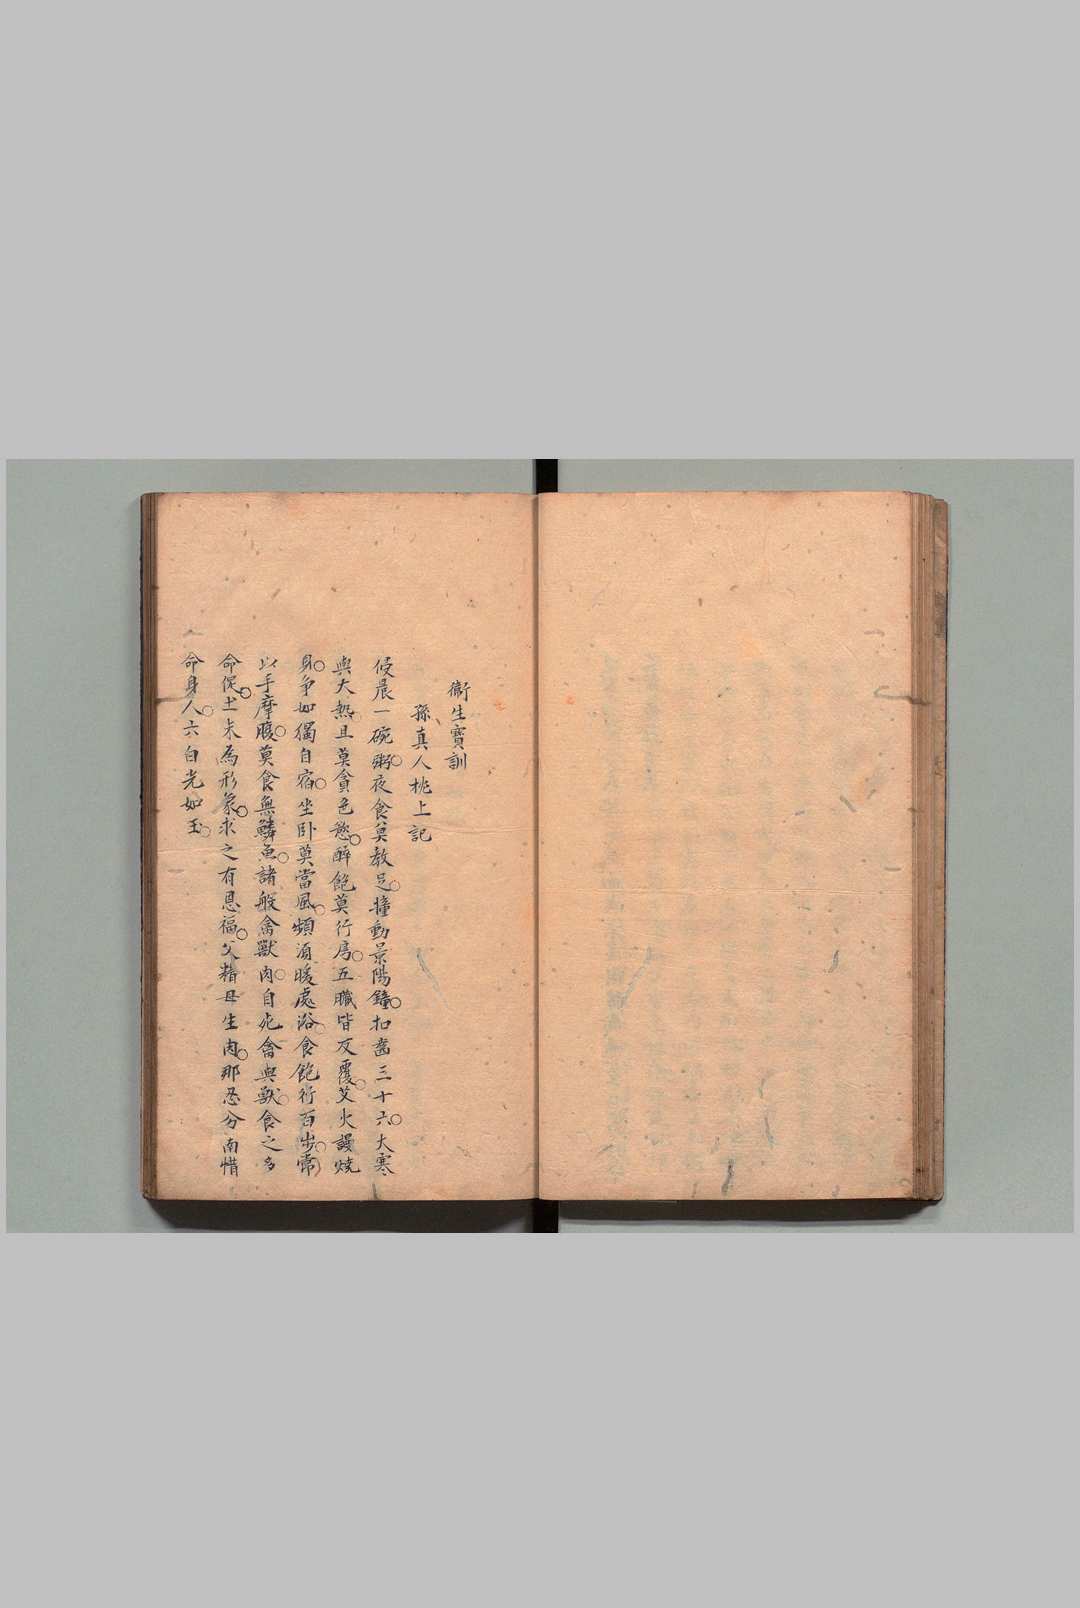 衛生寶訓
孫真人枕上記
侵晨一碗粥夜食莫教足撞動景陽鐘扣齒三十六大寒
與大熱且莫貪色慾醉飽莫行房五臟皆反覆艾火謾燒
身爭如獨自宿坐卧莫當風頻湏暖處浴食飽行百步常
以手摩腹莫食無鱗魚諸般禽獸肉自死禽與獸食之多
命促土木為形象求之有恩福父精母生肉那忍分南惜
命身人六白光如玉